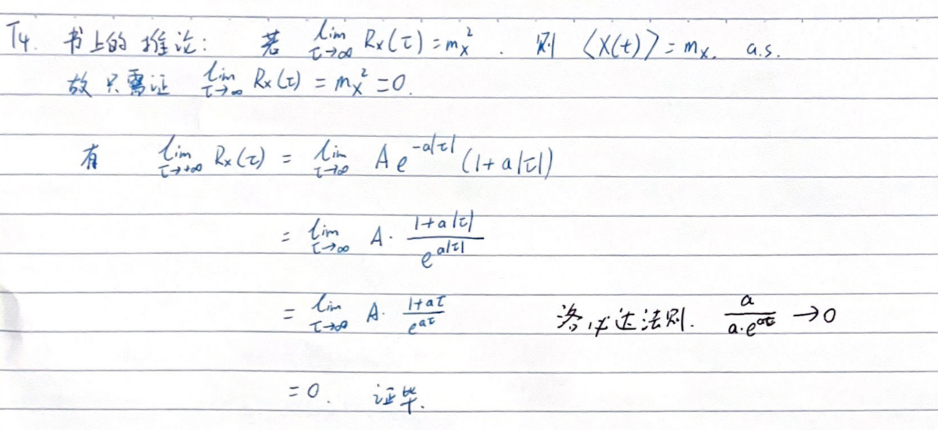 T4. 书上的推论： 若 lim_{τ→∞} R_X(τ) = m_X^2 . 则 〈X(t)〉 = m_X. a.s.
故只需证 lim_{τ→∞} R_X(τ) = m_X^2 = 0.
有 lim_{τ→+∞} R_X(τ) = lim_{τ→∞} A e^{-a|τ|} (1+a|τ|)
= lim_{τ→∞} A · \frac{1+a|τ|}{e^{a|τ|}}
= lim_{τ→∞} A · \frac{1+aτ}{e^{aτ}} 洛必达法则. \frac{a}{a·e^{aτ}} → 0
= 0. 证毕.